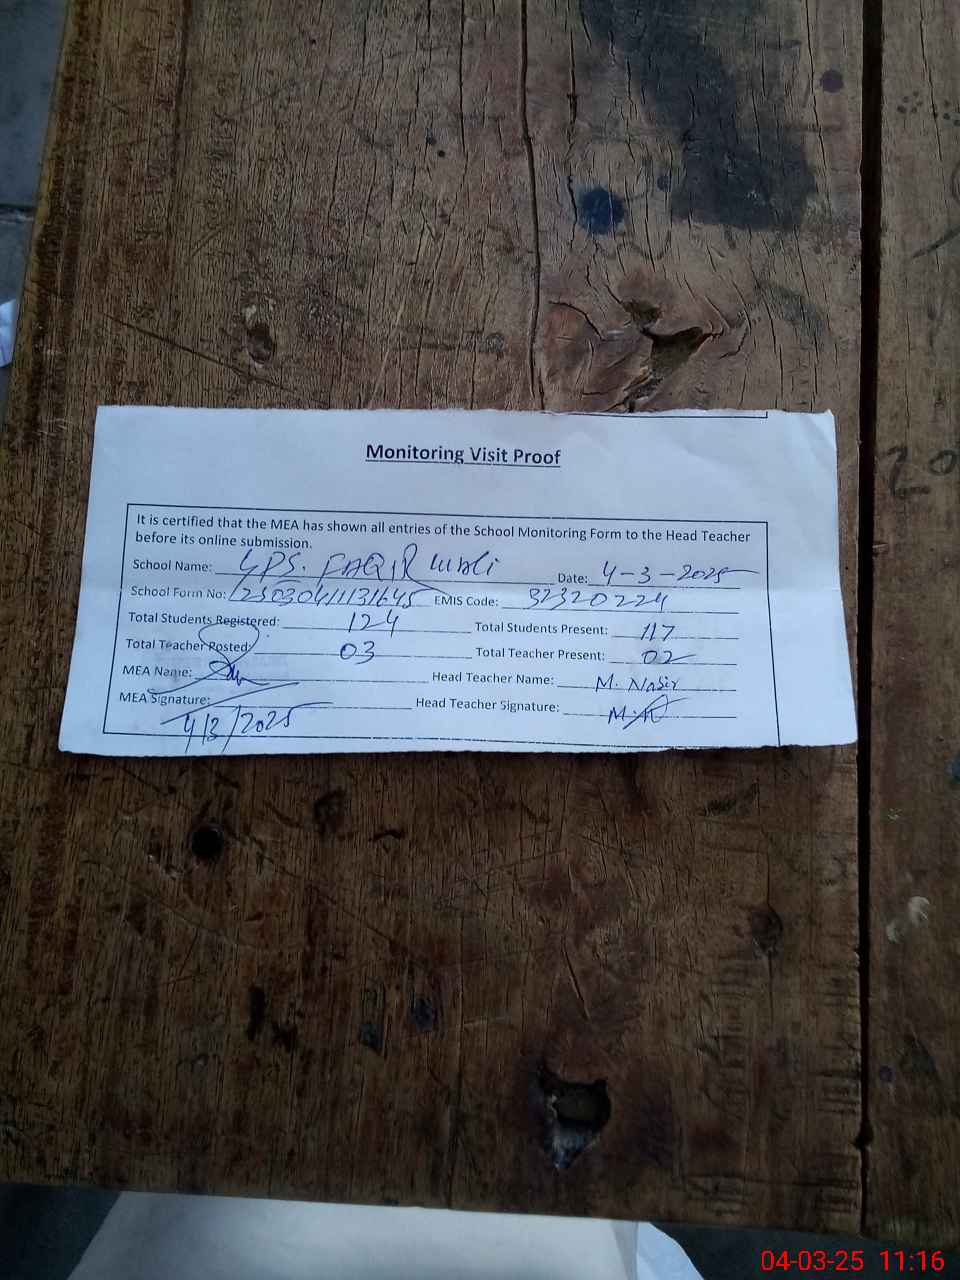 Monitoring Visit Proof
It is certified that the MEA has shown all entries of the School Monitoring Form to the Head Teacher
before its online submission.
School Name: GPS. FAQIR Wali Date: 4-3-2025
School Form No: 25030411131645 EMIS Code: 32320224
Total Students Registered: 124 Total Students Present: 117
Total Teacher Posted: 03 Total Teacher Present: 02
MEA Name: Head Teacher Name: M. Nasir
MEA Signature: Head Teacher Signature:
4/3/2025
20
04-03-25 11:16